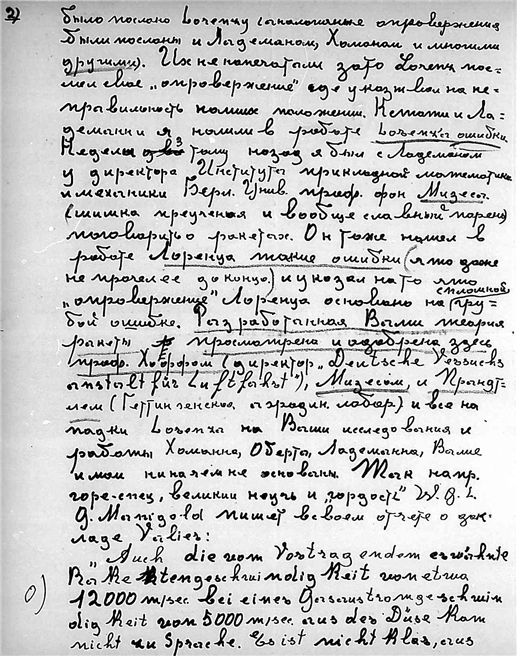 2)
было послано Lorenzу (аналогичные опровержения
были посланы и Ладеманом, Хоманом и многими
другими). Их не напечатали зато Lorenz пос-
лал свое „опровержение" где указывал на не-
правильность наших положений. Кстати и Ла-
деманн и я нашли в работе Lorenz'a ошибки.
Недели 3 тому назад я был с Ладеманом
у директора Института прикладной математики
и механики Берл. Унив. проф. фон Мизеса
(шишка преученая и вообще славный парень)
поговорить о ракетах. Он тоже нашел в
работе Лоренца такие ошибки (я то даже
не прочел ее до конца) и указал на то что
„опровержение" Лоренца основано на сплошной гру-
бой ошибке. Разработанная Вами теория
ракеты просмотрена и одобрена здесь
проф. Хоффом (директор „Deutsche Versuchs
anstalt für Luftfahrt"), Мизесом, и Прандт-
лем (Геттингенская аэродин. лабор.) и все на
падки Lorenza на Ваши исследования и
работы Хоманна, Оберта, Ладеманна, Валье
и мои ни на чем не основаны. Так напр.
горе-спец, великий неуч и „гордость" W.G.L.
G. Manigold пишет в своем отчете о док-
ладе Valier:
„Auch die vom Vortragendem erwähnte
Raketengeschwindigkeit von etwa
0)
12000 m/sec bei einer Gasausstromgeschwin
digkeit von 5000 m/sec aus der Düse kam
nicht zu Sprache. Es ist nicht klar, aus